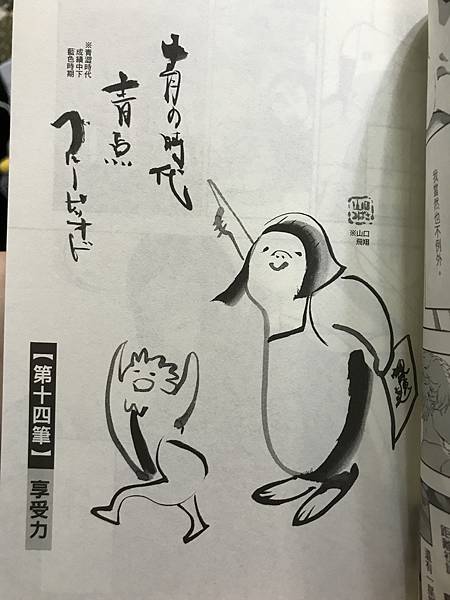 我當然也不例外。
※山口
飛翔
青の時代
青点
ブルーピリオド
※青澀時代
成績中下
藍色時期
【第十四筆】享受力